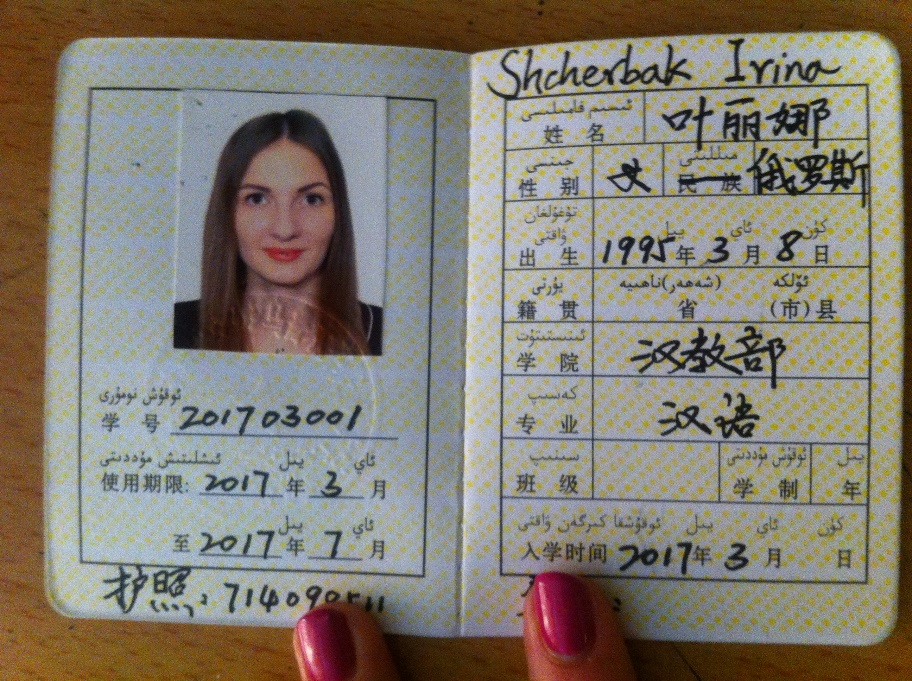 ئوقۇش نومۇرى
学 号 201703001
ئىشلىتىش مۇددىتى يىل ئاي
使用期限: 2017 年 3 月
يىل ئاي
至 2017 年 7 月
护照:
Shcherbak Irina
ئىسىم فامىلىسى
姓 名 叶丽娜
جىنسى مىللىتى
性 别 女 民 族 俄罗斯
تۇغۇلغان
ۋاقتى يىل ئاي كۈن
出 生 1995 年 3 月 8 日
يۇرتى ئۆلكە (شەھەر)ناھىيە
籍 贯 省 (市)县
ئىنستىتۇت
学 院 汉教部
كەسىپ
专 业 汉语
سىنىپ ئوقۇش مۇددىتى يىل
班 级 学 制 年
ئوقۇشقا كىرگەن ۋاقتى يىل ئاي كۈن
入学时间 2017 年 3 月 日